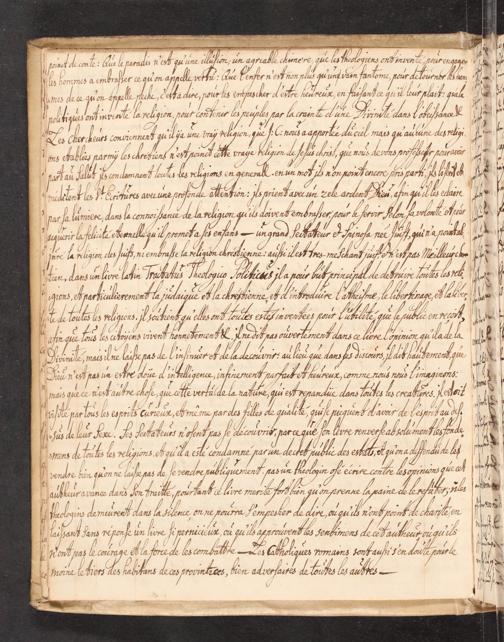 point de conte: que le paradis n'est qu'une illusion, un agreable chimere, que les theologiens ont inventé pour engager
les hommes a embrasser ce qu'on appelle vertu: que l'enfer n'est non plus qu'un vain fantome, pour detourner les hom
mes de ce qu'on appelle peché, c'est a dire, pour les empescher d'estre heureux, en faisant ce qu'il leur plaist: que le
politiques ont inventé la religion, pour contenir les peuples par la crainte d'une Divinité dans l'obeissance &
Les chercheurs conviennent qu'il y a une vray religion, que J.C. nous a apportée du ciel mais qu'aucune des religi
ons etablies parmy les chretiens n'est point cette vraye religion de Jesus christ, que nous devons professer pour avoir
part au salut, ils condamnent toutes les religions en generalle, en un mot ils n'on point encore pris parti, ils lisent et
meditent les Stes Ecritures avec une profonde attention: ils prient avec un zele ardent Dieu, afin qu'il les eclaire
par sa lumiere, dans la connoissance de la religion qu'ils doivent embrasser, pour le servir selon sa volonté, et pour
acquerir la felicité eternelle qu'il promet a ses enfans — un grand sectateur est Spinosa nee Juif, qui n'a point ab
juré la religion des Juifs, ni embrassé la religion chrestienne: aussi il est tres-meschant juif, & n'est pas meilleur chre
tien, dans un livre latin Tractatus Theologico Politicus, il a pour but principal de detruire toutes les reli
gions, et particulierement la judaique et la chrestienne, et d'introduire l'atheisme, le libertinage, et la liber
té de toutes les religions. il soutient qu'elles ont toutes estes inventées pour l'utilité, que le public en recoit,
afin que tous les citoyens vivent honnetement &c, il ne dit pas ouvertement dans ce livre l'opinion qu'il a de la
Divinité, mais il ne laisse pas de l'insinuer et de la decouvrir: au lieu que dans ses discours, il dit hautement que
Dieu n'est pas un estre doué d'intelligence, infiniment parfait et heureux, comme nous nous l'imaginons:
mais que ce n'est autre chose, que cette vertu de la nature, qui est repandue dans toutes les creatures. il est
visité par tous les esprits curieux, et même par des filles de qualité, qui se piquent d'avoir de l'esprit au des
sus de leur sexe. Ses sectateurs n'osent pas se decouvrir, parce que son livre renverse absolument les fonde
mens de toutes les religions, et qu'il a esté condamné par un decret public des estats, & qu'on a deffendu de les
vendre bien qu'on ne laisse pas de le vendre publiquement. pas un theologien ose écrire contre les opinions que cet
autheur avance dans son traitté, pourtant ce livre merite fort bien qu'on prenne la paine de le refuter, si les
theologiens demeurent dans la silence on ne poura s'empescher de dire, ou qu'ils n'ont point de charité, en
laissant sans reponse un livre si pernicieux, ou qu'ils approuvent les sentimens de cet autheur, ou qu'ils
n'ont pas le courage et la force de les combattre — Les Catholiques romains sont aussi sen doute pour le
moine le tiers des habitans de ces provintces, bien adversaires de toutes les autres —